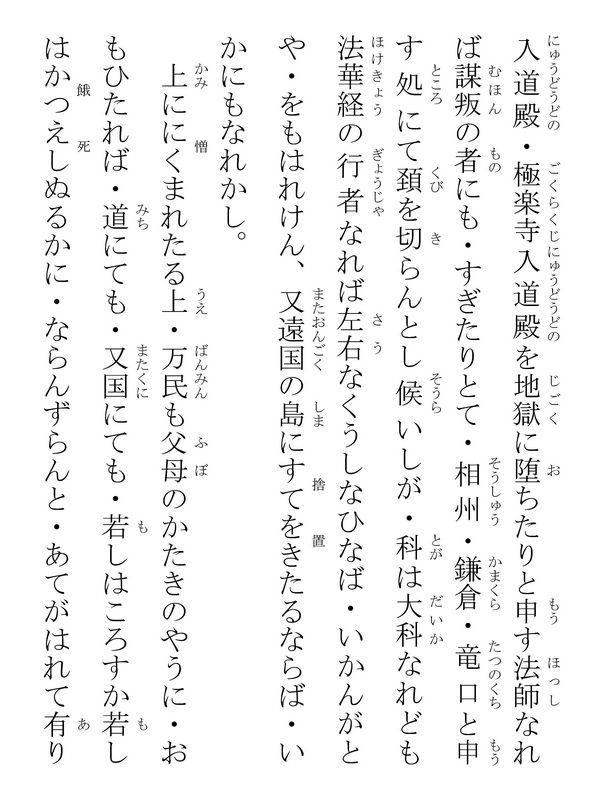 入道殿・極楽寺入道殿を地獄に堕ちたりと申す法師なれ
ば謀叛の者にも・すぎたりとて・相州・鎌倉・竜口と申
す処にて頚を切らんとし候いしが・科は大科なれども
法華経の行者なれば左右なくうしなひなば・いかんがと
や・をもはれけん、又遠国の島にすてをきたるならば・い
かにもなれかし。
上ににくまれたる上・万民も父母のかたきのやうに・お
もひたれば・道にても・又国にても・若しはころすか若し
はかつえしぬるかに・ならんずらんと・あてがはれて有り